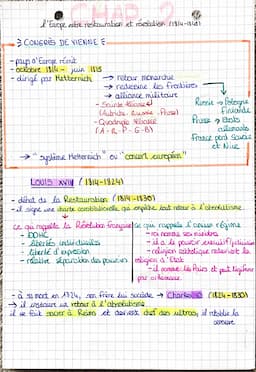 CHAP 2
L'Europe entre restauration et révolution (1814-1848)
CONGRÈS DE VIENNE
- pays d'Europe réunit
- octobre 1814 - juin 1815
- dirigé par Metternich → retour monarchie
→ redessine les frontières
→ alliance militaire
- Sainte Alliance
(Autriche - Russie - Prusse)
- Quadruple Alliance
(A - R - P - G-B)
Russie → Pologne
Finlande
Prusse → Etats
allemands
France perd Savoie
et Nice
→ "système Metternich" ou "concert européen"
LOUIS XVIII (1814-1824)
- début de la Restauration (1814-1830)
- il signe une charte constitutionnelle qui empêche tout retour à l'absolutisme.
ce qui rappelle la Révolution française
- DDHC
- libertés individuelles
- liberté d'expression
- relative séparation des pouvoirs
ce qui rappelle l'ancien régime
- roi nomme ses ministres
- il a le pouvoir exécutif
- religion catholique redevient la
religion d'Etat
- il nomme les Pairs et peut
- à sa mort en 1824, son frère lui succède → Charles X (1824-1830)
→ il instaure un retour à l'absolutisme
il se fait sacrer à Reims et devient chef des ultras, il rétablit la
censure